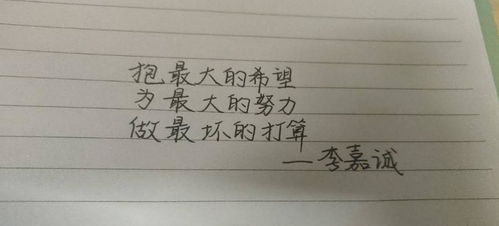 抱最大的希望
为最大的努力
做最坏的打算
—李嘉诚